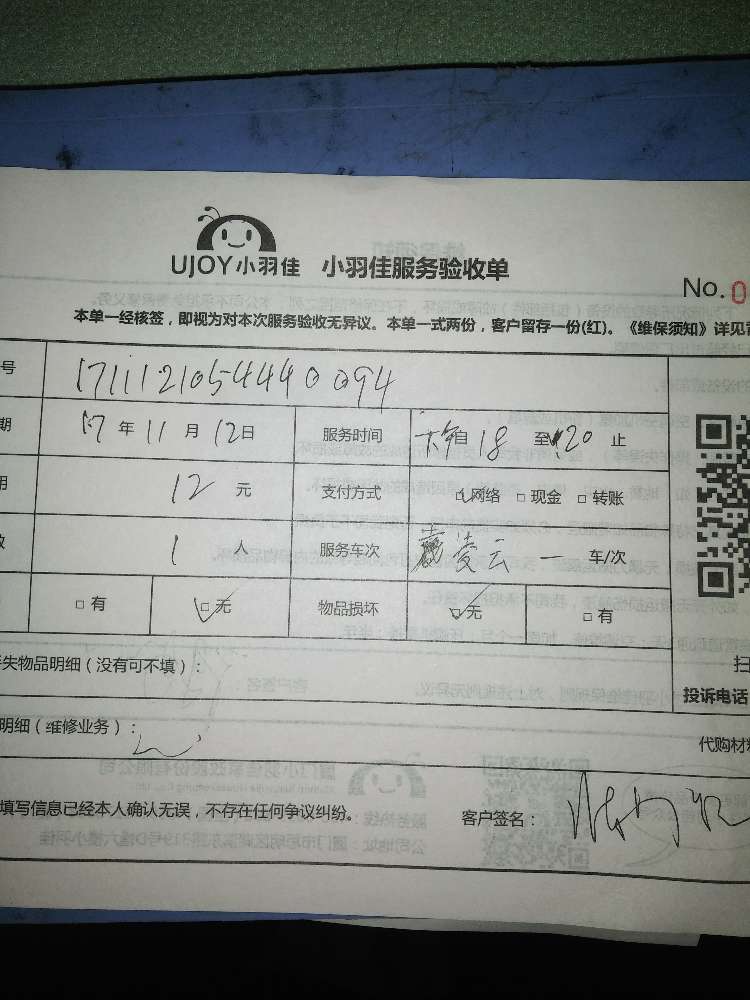 UJOY小羽佳 小羽佳服务验收单
No. 0
本单一经核签，即视为对本次服务验收无异议。本单一式两份，客户留存一份(红)。《维保须知》详见
号 1711121054440094
期 17年 11月 12日 服务时间 自 18 至 20 止
12 元 支付方式 ☑网络 □现金 □转账
1 人 服务车次 凌云 一 车/次
□有 ☑无 物品损坏 ☑无 □有
失物品明细（没有可不填）： 扫
投诉电话
明细（维修业务）： 代购材料
填写信息已经本人确认无误，不存在任何争议纠纷。 客户签名：